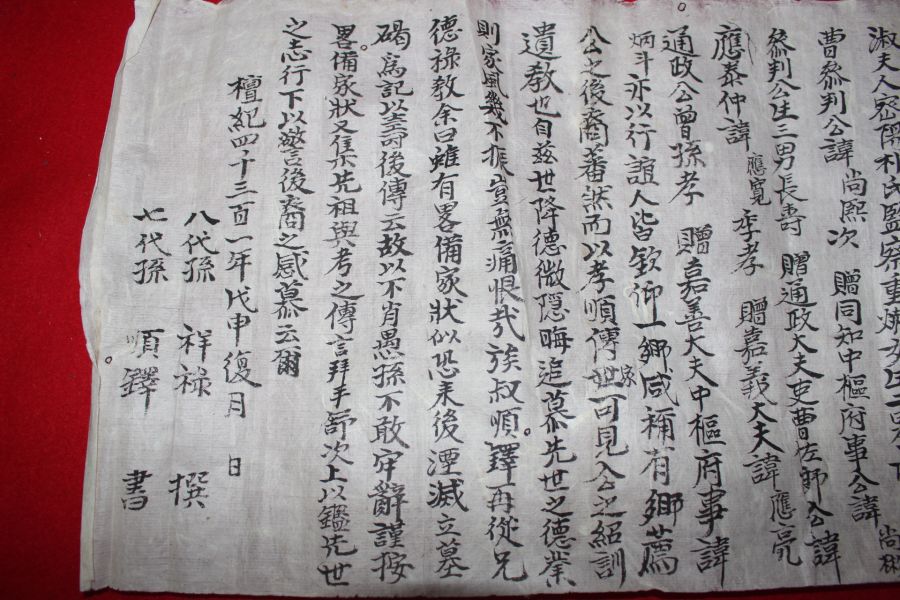 淑夫人密陽朴氏監察重煥女生二男
曹參判公諱尚熙次 贈同知中樞府事公諱尚彬
參判公生三男長壽 贈通政大夫吏曹佐郎公諱
應泰仲諱應寬季孝 贈嘉義大夫諱應亮
通政公曾孫孝 贈嘉善大夫中樞府事諱
炳斗亦以行誼人皆欽仰一鄉咸稱有鄉薦
公之後裔蕃然而以孝順傳世家可見公之紹訓
遺教也自玆世降德微隱晦追慕先世之德業
則家風幾不振豈無痛恨哉族叔順鐸再從兄
德祿教余曰雖有畧備家狀似恐來後湮滅立墓
碣爲記以壽後傳云故以不肖愚孫不敢牢辭謹按
畧備家狀又集先祖與考之傳言拜手舒次上以鑑先世
之志行下以警後裔之感慕云爾
檀紀四千三百一年戊申復月 日
八代孫 祥祿 撰
七代孫 順鐸 書